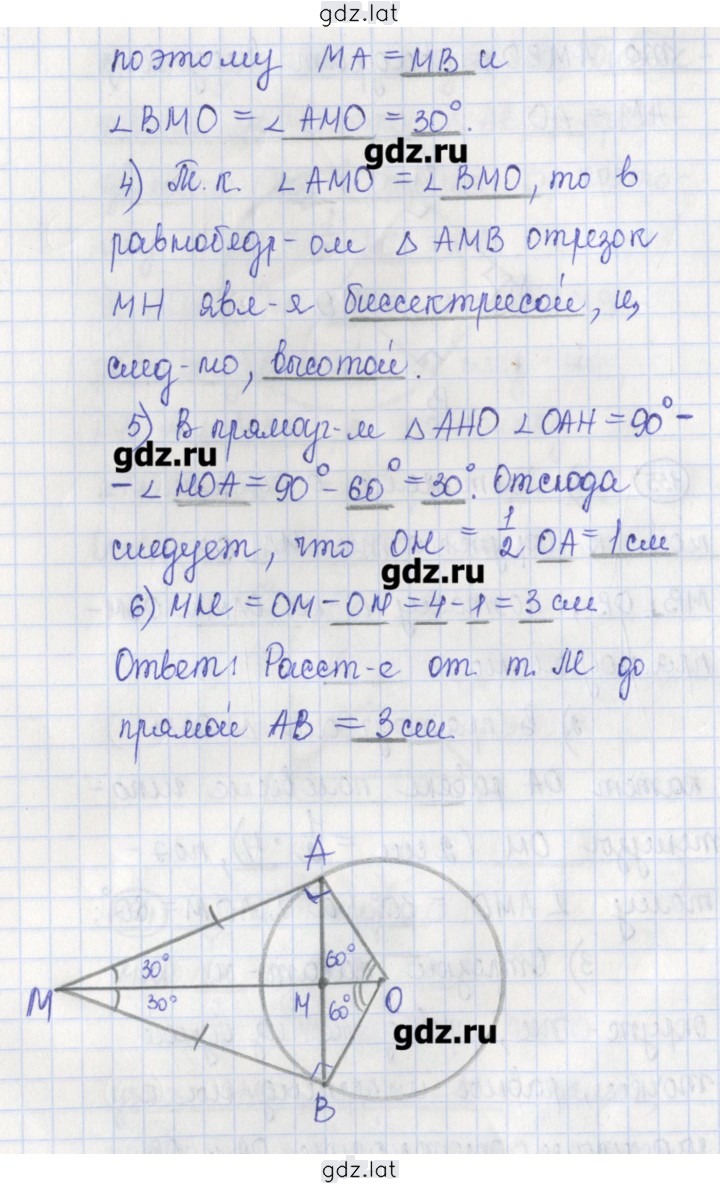 gdz.lat
поэтому MA = MB и
∠BMO = ∠AMO = 30°.
gdz.ru
4) Т.к. ∠AMO = ∠BMO, то в
равнобедр-ом △ AMB отрезок
MH явл-я биссектрисой, и,
след-но, высотой.
5) В прямоуг-м △AHO ∠OAH = 90° -
gdz.ru
- ∠HOA = 90° - 60° = 30°. Отсюда
следует, что OH = 1/2 OA = 1 см
gdz.ru
6) MH = OM - OH = 4 - 1 = 3 см
Ответ: Расст-е от т. M до
прямой AB = 3 см.
A
30°
60°
M
30°
H
60°
O
gdz.ru
B
gdz.lat